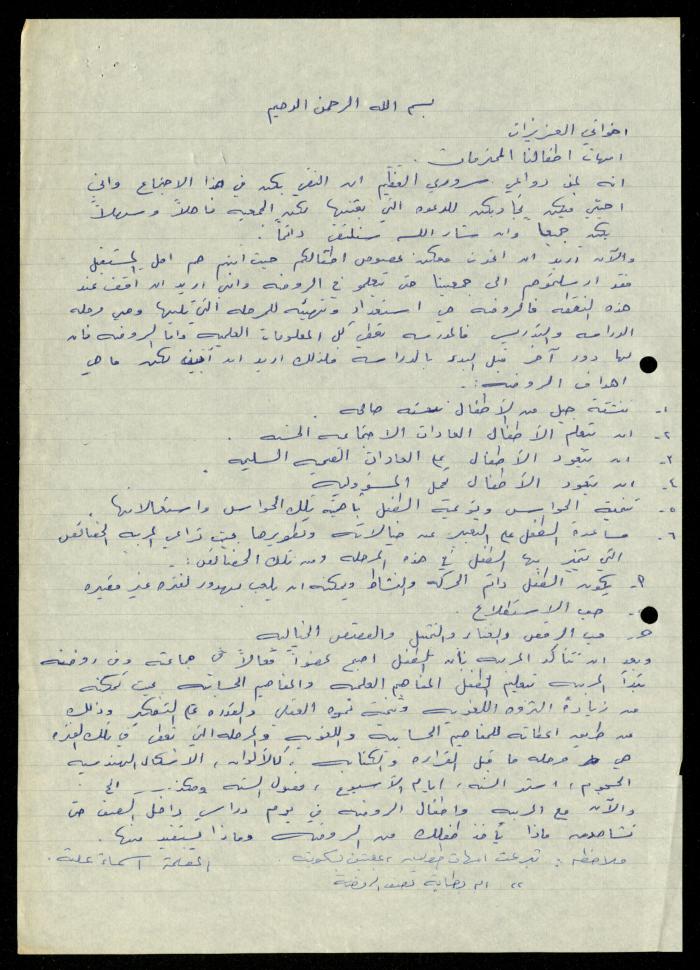 بسم الله الرحمن الرحيم
اخواتي العزيزات
امهات اطفالنا المحترمات .
انه لمن دواعي سروري العظيم ان التقي بكن في هذا الاجتماع واني
احيي فيكن تجاوبكن للدعوه التي بعثتها لكن الجمعيه فاهلاً وسهلاً
بكن جميعا وان شاء الله سنلتقي دائماً .
والآن اريد ان اتحدث معكن بخصوص اطفالكم حيث انهم هم امل المستقبل
فقد ارسلتموهم الى جمعيتنا حتى يتعلمو في الروضه وانني اريد ان اقف عند
هذه النقطه فالروضه هي استعداد وتهيئه للمرحله التي تليها وهي مرحله
الدراسه والتدريس فالمدرسه تعطي كل المعلومات العلميه واما الروضه فان
لها دور آخر قبل البدء بالدراسه فلذلك اريد ان اضيف لكن ما هي
اهداف الروضه :-
١- تنشئة جيل من الأطفال نشئه صالحه .
٢- ان يتعلم الأطفال العادات الاجتماعيه الحسنه .
٣- ان يتعود الأطفال على العادات الصحيه السليمه .
٤- ان يتعود الأطفال تحمل المسؤوليه
٥- تنمية الحواس وتوعية الطفل بأهمية تلك الحواس واستعمالاتها .
٦- مساعدة الطفل على التعبير عن خيالاته وتطويرها بحيث تراعي المربيه الخصائص
التي يتميز بها الطفل في هذه المرحله ومن تلك الخصائص :
يكون الطفل دائم الحركه والنشاط ويمكنه ان يلعب بهدوء لفتره غير قصيره
حب الاستطلاع .
حب الرقص والغناء والتمثيل والقصص الخياليه
وبعد ان تتأكد المربيه بأن الطفل اصبح عضواً فعالاً في جماعته وفي روضته
تبدأ المربيه بتعليم الطفل المفاهيم العلميه والمفاهيم الحسابيه بحيث تمكنه
من زيادة الثروه اللغويه وتنمية نموه العقلي والقدره على التفكير وذلك
من طريق اعطائه للمفاهيم الحسابيه واللغويه والمرحله التي تعطى في تلك الفتره
هي مرحله ما قبل القراءه والكتابه ، كالألوان ، الاشكال الهندسيه
الحجوم ، اشهر السنه ، ايام الأسبوع ، فصول السنه وهكذا ... الخ
والآن مع المربيه واطفال الروضه في يوم دراسي داخل الصف حتى
تشاهدن ماذا يأخذ طفلك من الروضه وماذا يستفيد منها .
ملاحظه : تبرعت امهات بسكويت المعلمة اسماء
,, ام الروضة